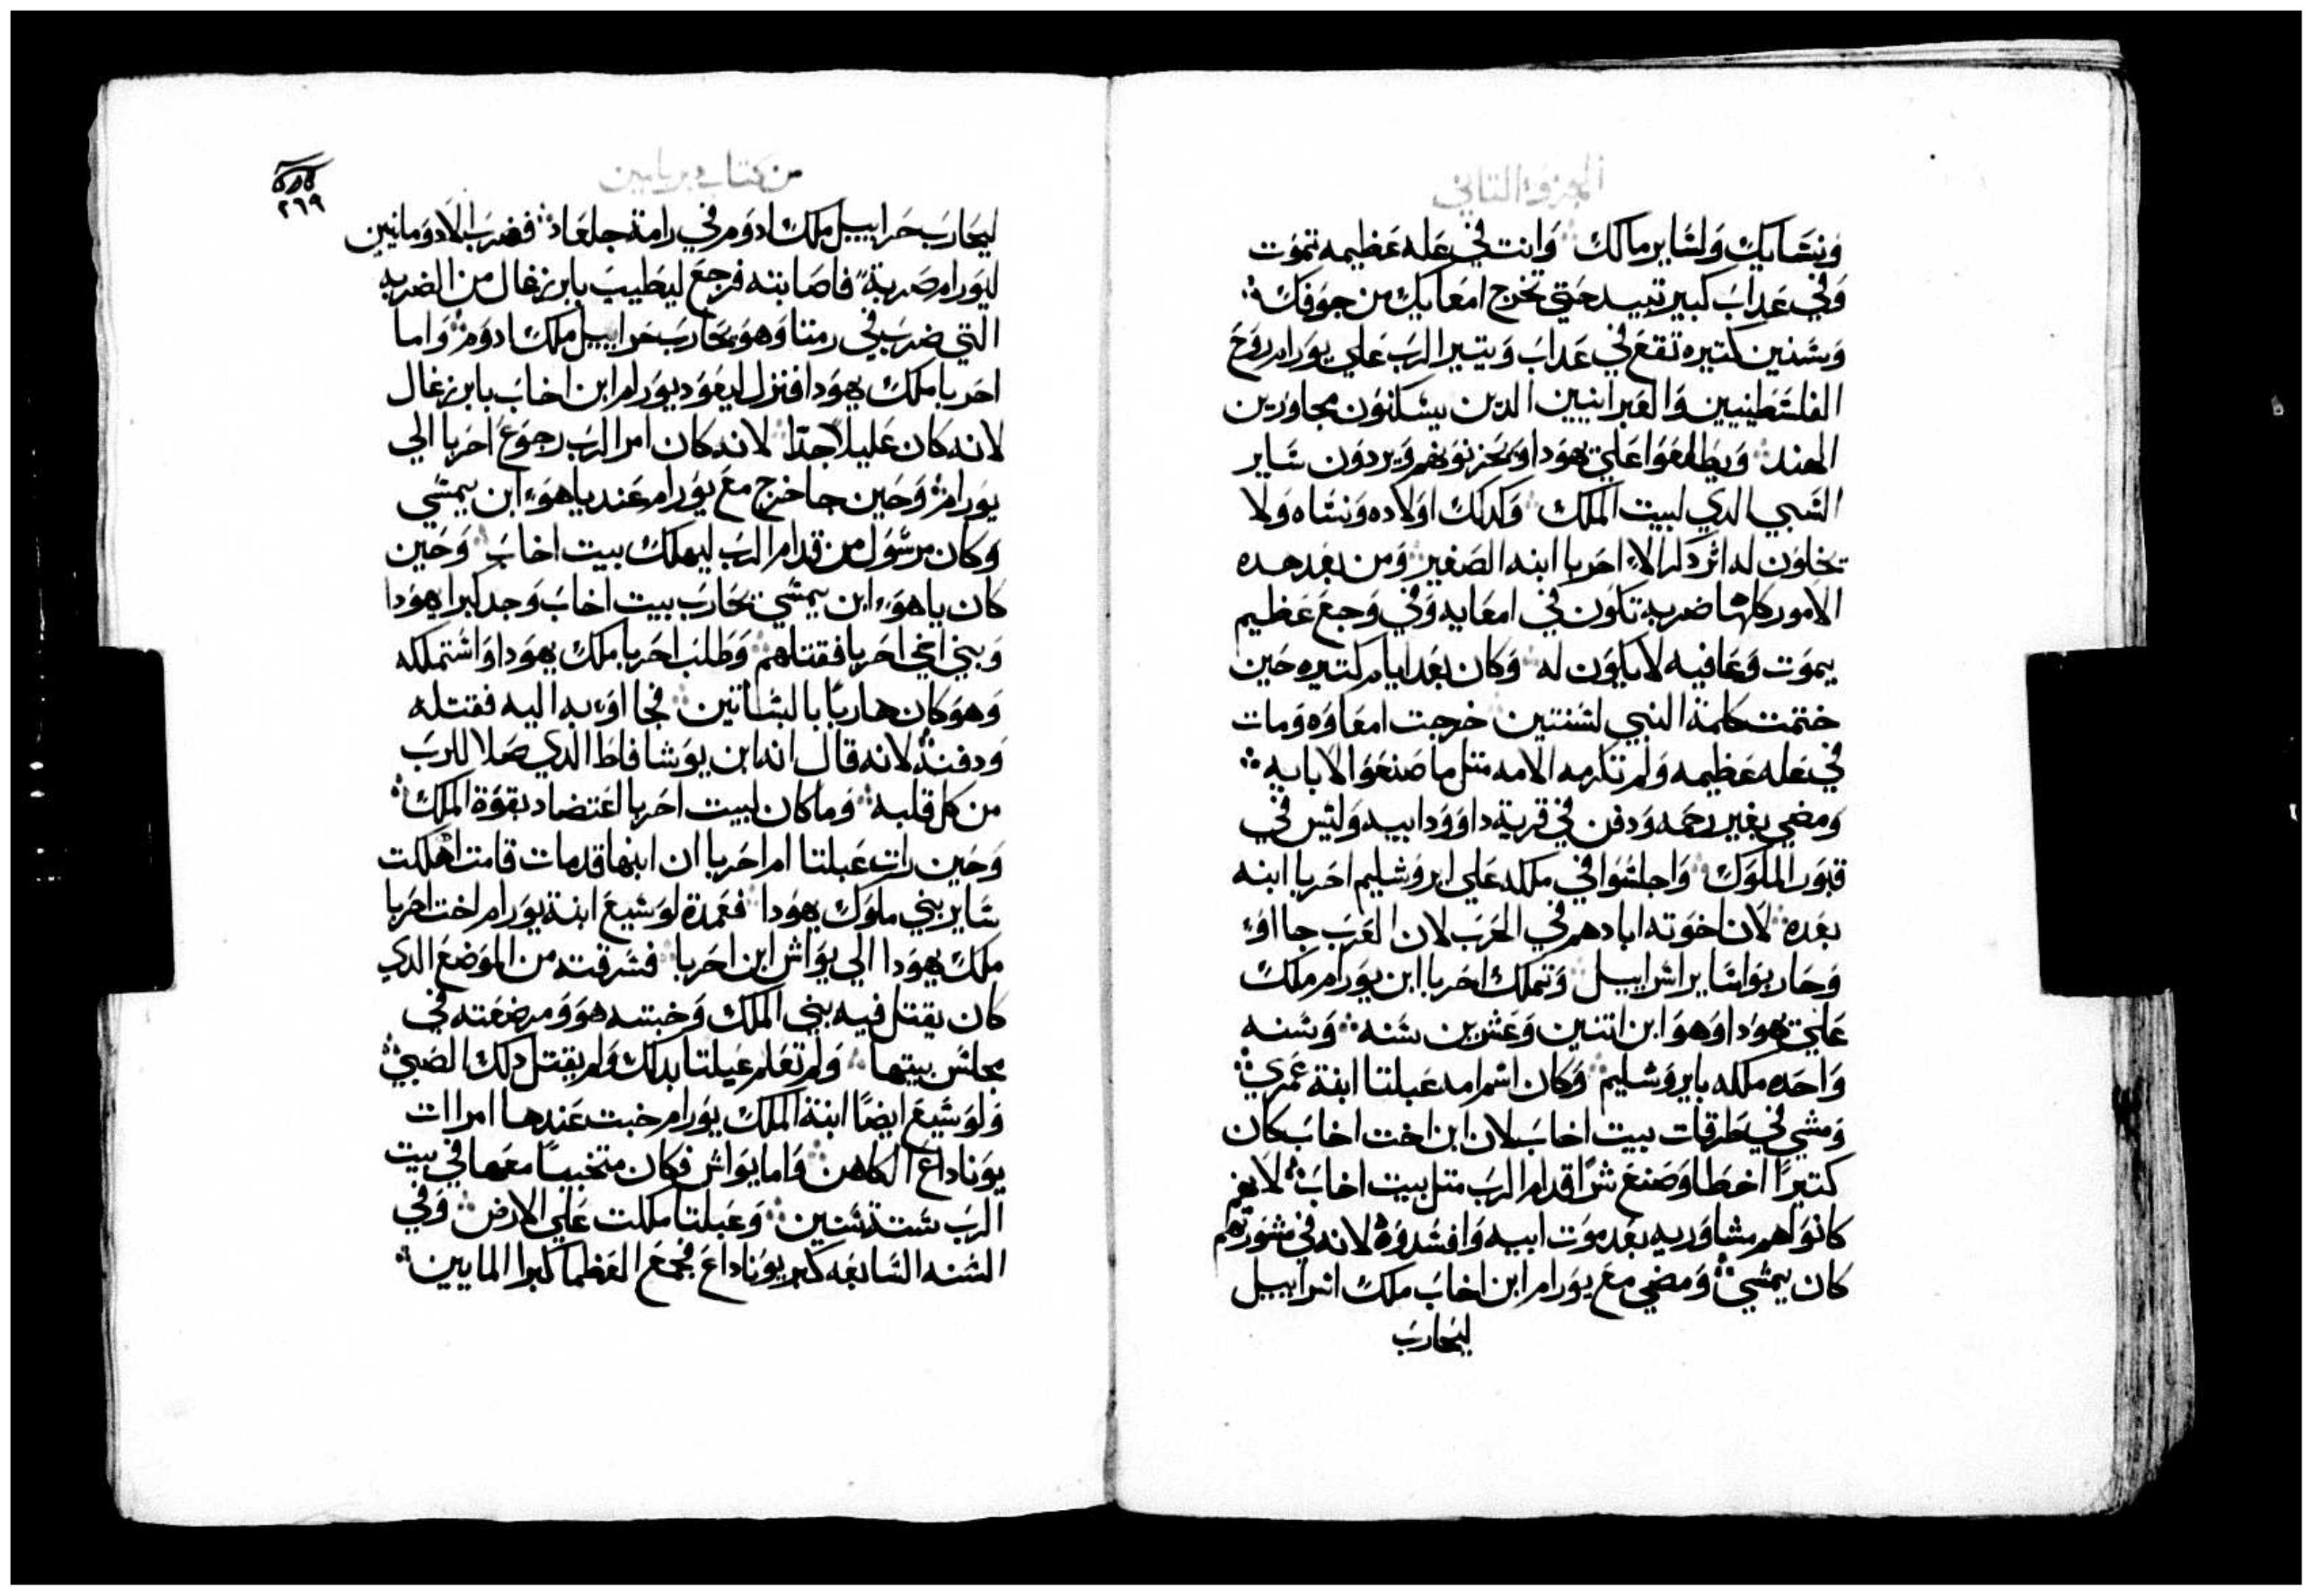 الجزو الثاني
وَنسَايك وَلسَاير مالك وَانت في عَله عَظيمه تموَت
وَفي عَدابَ كبير تبيد حَتي تخرج امعَايك من جوَفك
وَسَنين كتيره تقعَ في عَدابَ وَيتير الربَ عَلي يوَرام روَحَ
الفلسَطينيين وَالعَبرانيين الدين يسَكنوَن مجاورَين
الهند وَيطلعَوا عَلي يهوَدا وَيحَزنوَنهم وَيردوَن سَاير
السَبي الدي لبيت الملك وَكدلك اوَلاده وَنسَاه وَلا
يخلوَن له اثر دكر الاء احَربا ابنه الصَغير وَمن بعَد هده
الاموَر كلها ضربة تكوَن في امعَايه وَفي وَجعَ عَظيم
يموَت وَعَافيه لا يكوَن له وَكان بعَد ايام كتيره حَين
ختمت كلمة النبي لسَنتين خرجت امعَاوَه وَمات
في عَله عَظيمه وَلم تكرمه الامه متل ما صَنعَوا لابايه
وَمضي بغير رحَمه وَدفن في قرية داوَوَد ابيه وَليسَ في
قبوَر الملوَك وَاجلسَوا في ملكه عَلي ايروَشليم احَربا ابنه
بعَده لان اخوَته ابادهم في الحَربَ لان العَربَ جااوَء
وَحَاربوَا سَاير اسَراييل وَتملك احَربا ابن يوَرام ملك
عَلي يهوَدا وَهوَ ابن اتنين وَعَشرين سَنه وَسَنه
وَاحَده ملكه بايروَشليم وَكان اسَم امه عَبلتا ابنة عَمري
وَمشي في طرقات بيت اخابَ لان ابن اخت اخابَ كان
كتيرًا اخطا وَصَنعَ شرًا قدام الربَ متل بيت اخابَ لانهم
كانوَا لهم مشاوَريه بعَد موَت ابيه وَافسَدوَه لانه في مشوَرتهم
كان يمشي وَمضي معَ يوَرام ابن اخابَ ملك اسَراييل
ليحَاربَ
من كتاب دبريامين
٢٦٩
ليحَاربَ حَراييل ملك ادوَم في رامة جلعَاد فضربَ الادوَمانيين
ليوَرام ضربة فاصَابته فرجعَ ليطيبَ بايرزغال من الضربه
التي ضربَ في رمتا وَهوَ يحَاربَ حَراييل ملك ادوَم وَاما
احَربا ملك يهوَدا فنزل ليعَوَد يوَرام ابن اخابَ بايرزغال
لانه كان عَليلًا جدا لانه كان امر الربَ رجوَعَ احَربا الي
يوَرام وَحَين جا خرج معَ يوَرام عَند ياهوَء ابن يمشي
وَكان مرسَوَل من قدام الربَ ليهلك بيت اخابَ وَحَين
كان ياهوَء ابن يمشي يحَاربَ بيت اخابَ وَجد كبرا يهوَدا
وَبني اخي احَربا فقتلهم وَطلبَ احَربا ملك يهوَدا وَاسَتملكه
وَهوَ كان هاربًا بالبسَاتين فجااوَء به اليه فقتله
وَدفنه لانه قال انه ابن يوَشافاط الدي صَلا للربَ
من كل قلبه وَما كان لبيت احَربا اعَتضاد بقوَة الملك
وَحَين رات عَبلتا ام احَربا ان ابنها قد مات قامت اهلكت
سَاير بني ملوَك يهوَدا فعَمدة لوَشيعَ ابنة يوَرام اخت احَربا
ملك يهوَدا الي يوَاش ابن احَربا فسَرقته من الموَضعَ الدي
كان يقتل فيه بني الملك وَخبته هوَ وَمرضعَته في
مجلسَ بيتها وَلم تعَلم عَبلتا بدلك وَلم يقتل دلك الصَبي
وَلوَشيعَ ايضًا ابنة الملك يوَرام خبت عَندها امراات
يوَناداعَ الكاهن وَاما يوَاش فكان متخبيًا معَها في بيت
الربَ سَتة سَنين وَعَبلتا ملكت عَلي الارض وَفي
السَنه السَابعَه كبر يوَناداعَ فجمعَ العَظما كبرا المايين